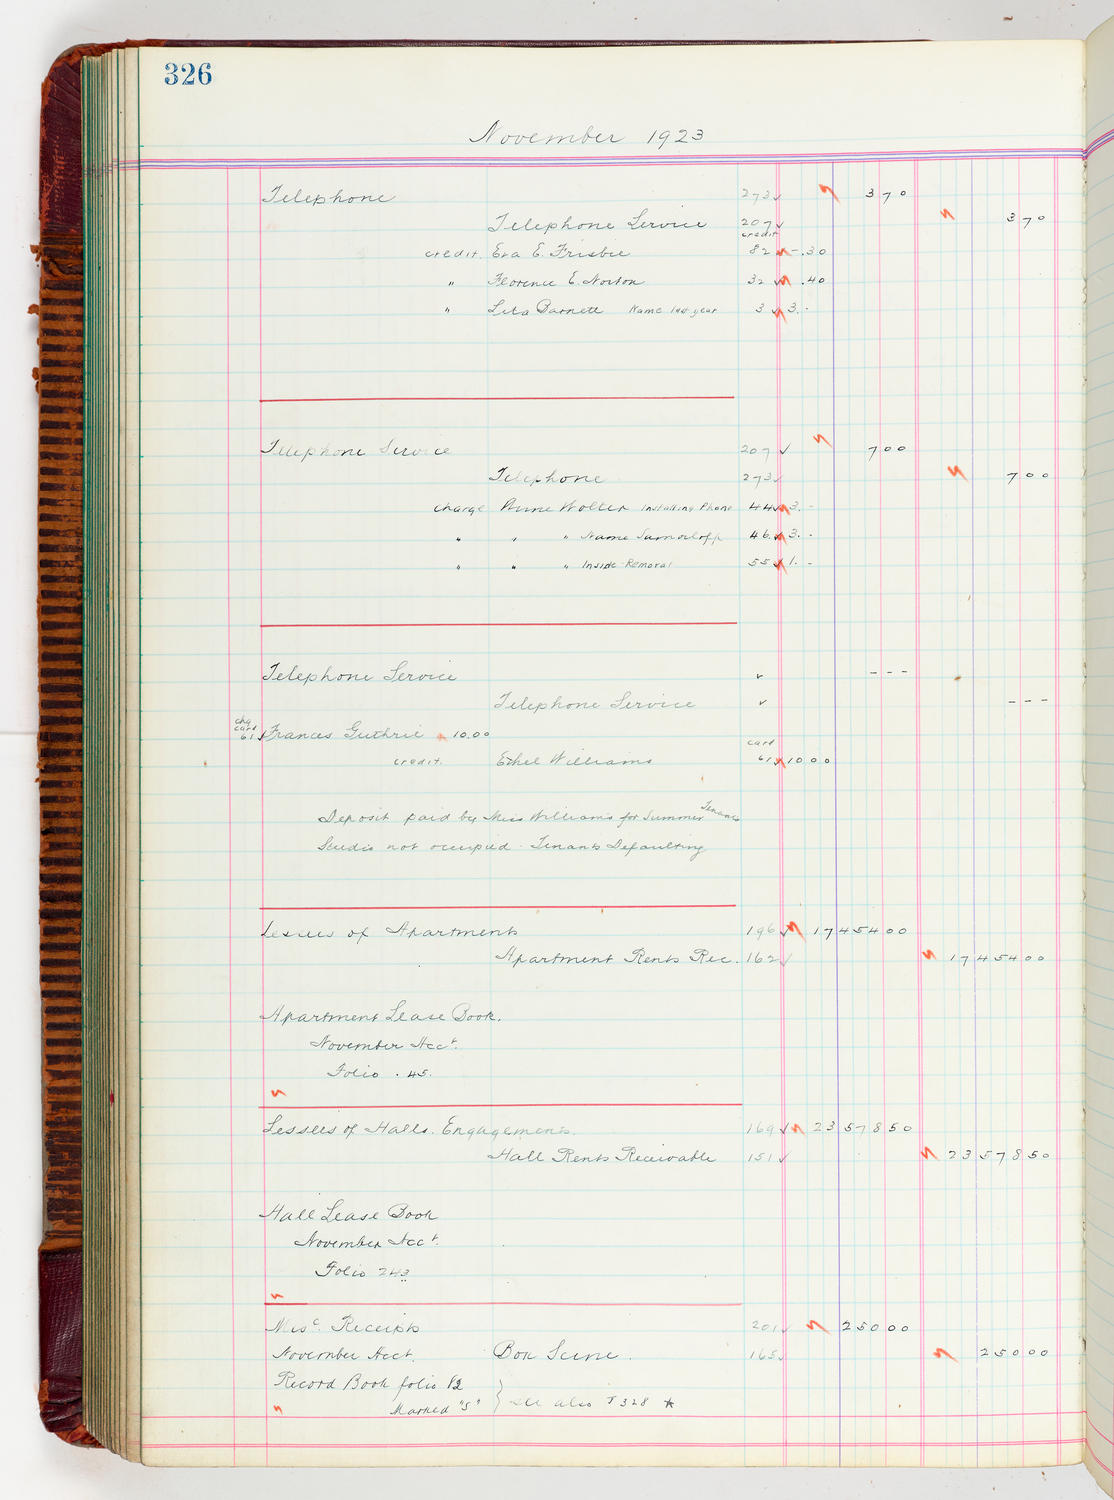 326
November 1923
Telephone 273 3 70
Telephone Service 207 3 70
credit
credit. Eva E. Frisbie 82 - .30
" Florence E. Norton 32 .40
" Leta Barnett Name last year 3 3. -
Telephone Service 207 7 00
Telephone 273 7 00
charge Anne Wolter Installing Phone 44 3. -
" " " Name 46 3. -
" " " Inside Removal 55 1. -
Telephone Service - - -
Telephone Service - - -
chg card 61 Frances Guthrie 10.00
card
credit. Ethel Williams 61 10 00
Deposit paid by Miss Williams for Summer Tenant
Studio not occupied - Tenants Defaulting
Lessees of Apartments 196 17454 00
Apartment Rents Rec. 162 17454 00
Apartment Lease Book.
November Acct.
Folio . 45.
Lessees of Halls. Engagements. 169 23578 50
Hall Rents Receivable 151 23578 50
Hall Lease Book
November Acct.
Folio 243
Misc. Receipts 201 250 00
November Acct. Box Scene. 165 250 00
Record Book folio 12
Marked "S" } see also F 328 *